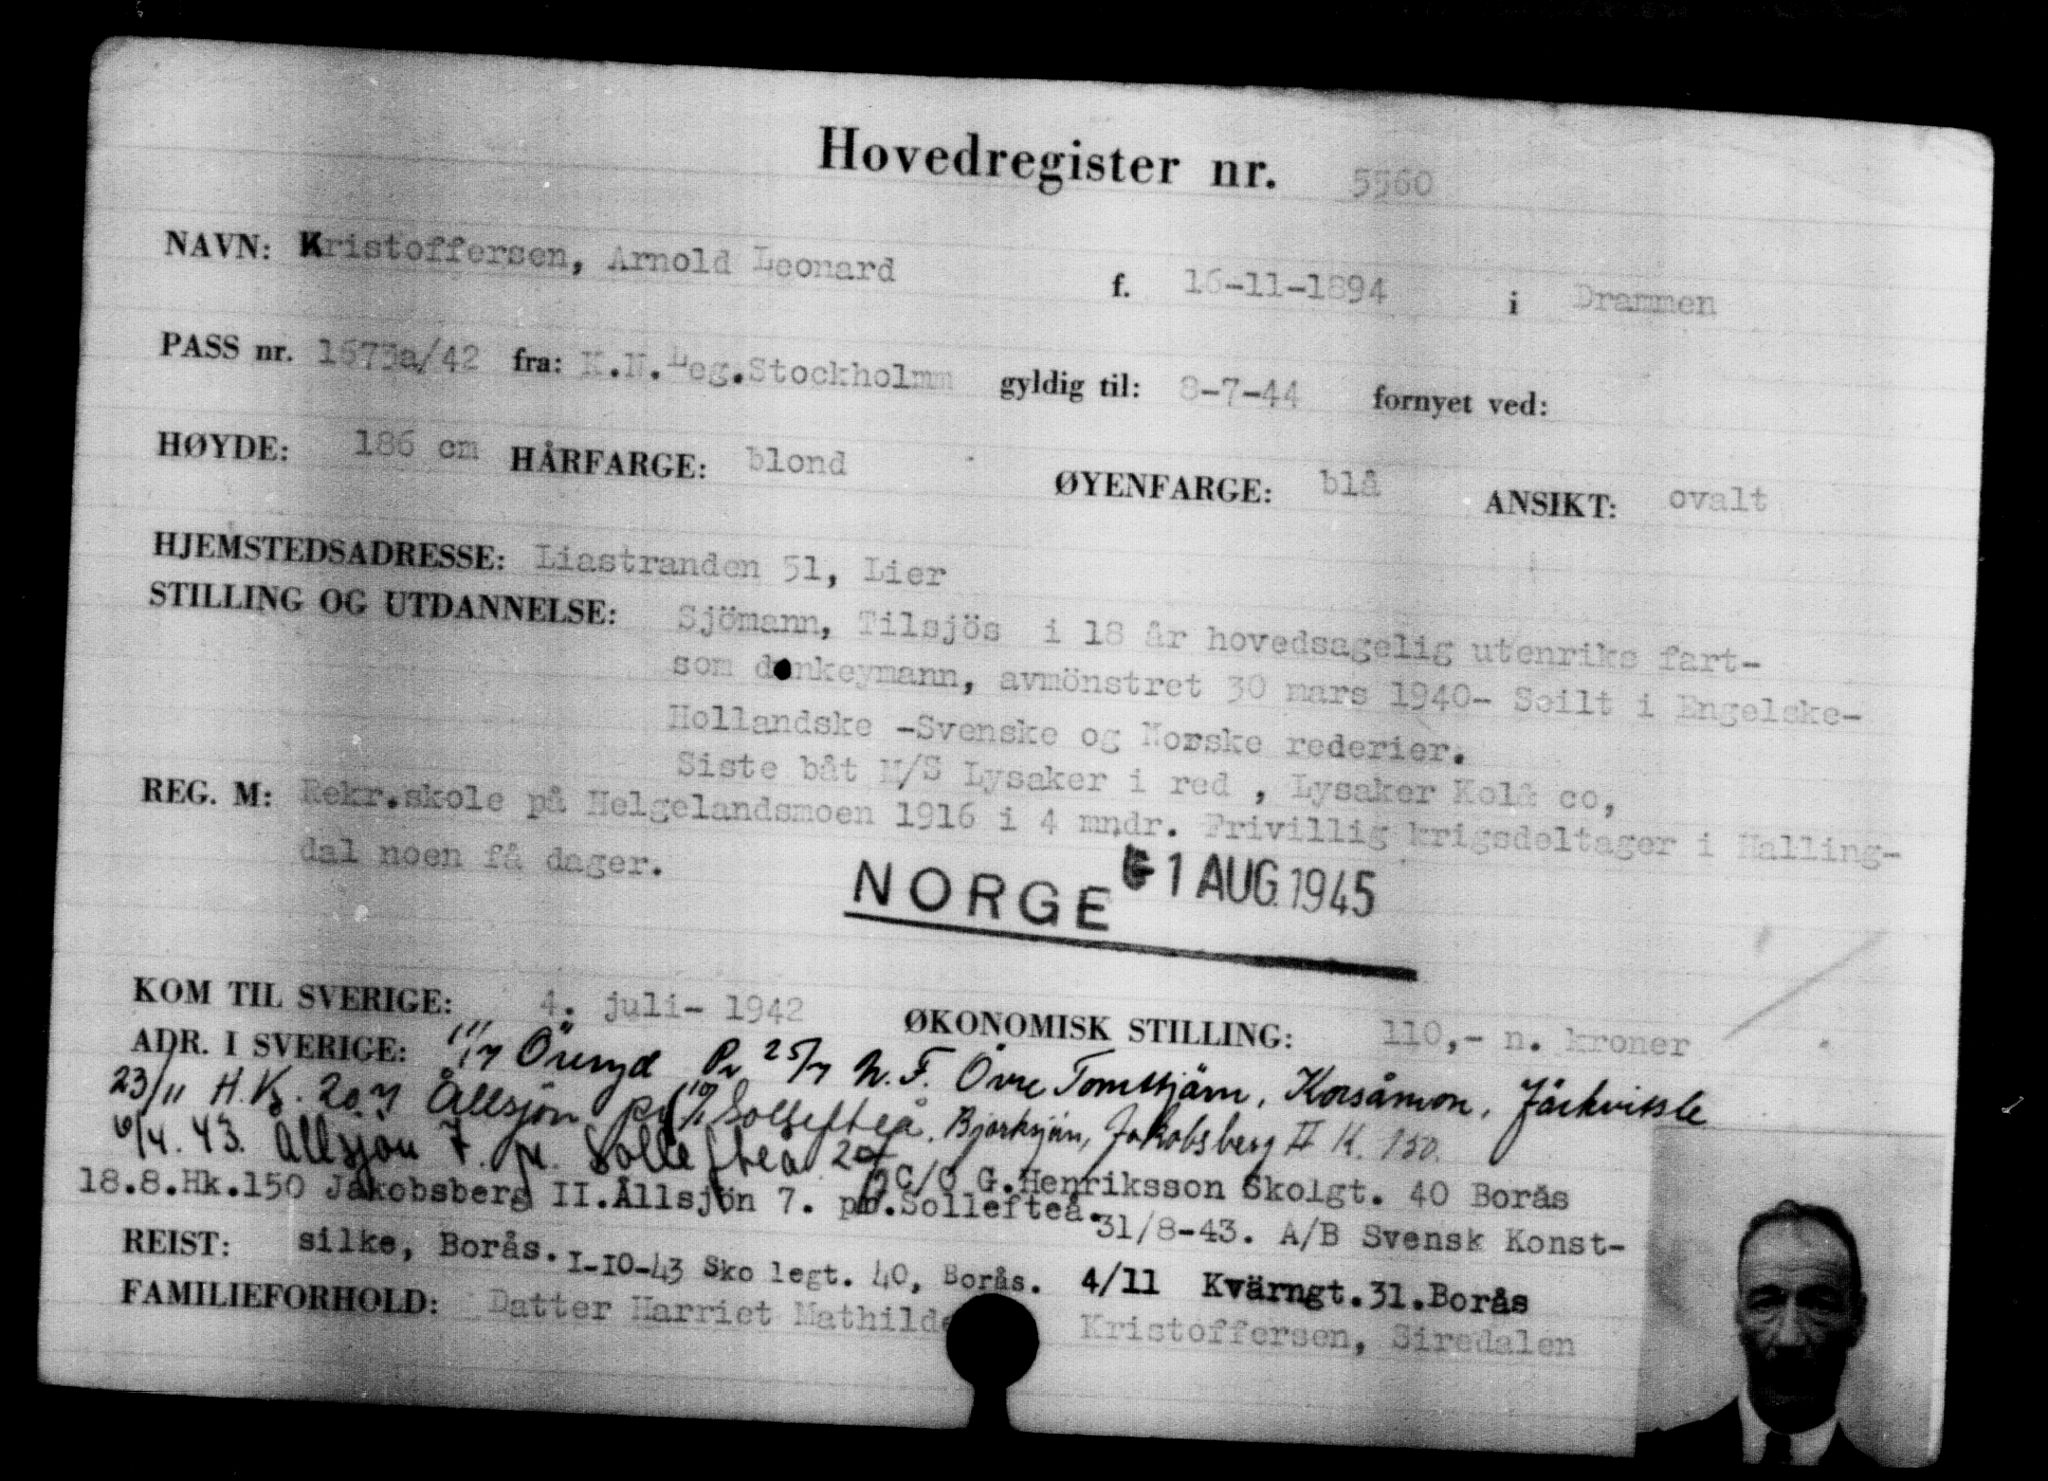 Hovedregister nr. 5560
NAVN: Kristoffersen, Arnold Leonard f. 16-11-1894 i Drammen
PASS nr. 1673a/42 fra: K.N.Leg.Stockholmm gyldig til: 8-7-44 fornyet ved:
HØYDE: 186 cm HÅRFARGE: blond ØYENFARGE: blå ANSIKT: ovalt
HJEMSTEDSADRESSE: Liastranden 51, Lier
STILLING OG UTDANNELSE: Sjömann, Tilsjös i 18 år hovedsagelig utenriks fart-
som donkeymann, avmönstret 30 mars 1940- Seilt i Engelske-
Hollandske -Svenske og Norske rederier.
Siste båt M/S Lysaker i red , Lysaker Kol& co,
REG. M: Rekr.skole på Helgelandsmoen 1916 i 4 mndr. Frivillig krigsdeltager i Halling-
dal noen få dager.
NORGE 1 AUG.1945
KOM TIL SVERIGE: 4. juli- 1942 ØKONOMISK STILLING: 110,- n. kroner
ADR. I SVERIGE: 11/7 Öreryd Pr 25/7 N.F. Övre Tomttjärn, Korsåmon, Järkvissle
23/11 H.K. 207 Ållsjön pr Sollefteå. Björksjön, Jakobsberg II K. 150.
6/4. 43. Ållsjön 7. pr. Sollefteå 207 C/O G.Henriksson Skolgt. 40 Borås
18.8.Hk.150 Jakobsberg II.Ållsjön 7. pr.Sollefteå. 31/8-43. A/B Svensk Konst-
REIST: silke, Borås. I-IO-43 Sko legt. 40, Borås. 4/11 Kvärngt.31.Borås
FAMILIEFORHOLD: Datter Harriet Mathilde Kristoffersen, Siredalen